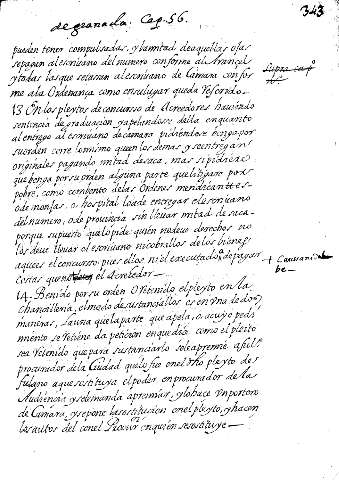 de granada. Cap. 56.
343
pueden tener compulsadas, y la mitad de aquellas ojas
se pagan al escriuano del numero conforme al Arancel
y todas las que se sacan al escriuano de Camara confor
me a la Ordenança como en su lugar queda referido.
13 En los pleytos de concurso de Acredores hauiendo
sentencia de graduacion y apelandose della en quanto
al entrego al escriuano de camara pidiendose venga por
su orden corre lo mismo que en los demas y se entregan
originales pagando mitad de saca, mas si pidiere
que venga por su orden alguna parte que litigare por
pobre, como conbento de las Ordenes mendicantes
de monjas, o hospital lo a de entregar el escriuano
del numero, o de prouincia sin lleuar mitad de saca
porque supuesto que lo pide quien no deue derechos no
los deue lleuar el escriuano ni cobrallos de los bienes
a que es el concurso, pues ellos ni el executado, de pagar
costas que el acreedor
14 Benido por su orden o retenido el pleyto en la
Chancilleria, el modo de sustanciallos es en una de dos
maneras, la una que la parte que apela, o a cuyo pedi
miento se retiene da peticion en que diçe como el pleito
esta retenido que para sustanciarlo se le apremie a fulº
procurador de la Ciudad que lo fue en el dho pleyto de
fulano a que sostituya el poder en procurador de la
Audiencia y se le manda apremiar, y lo haçe un portero
de Camara, y se pone la sostitucion en el pleyto, y haçen
los autos del con el Procur en quien se sostituye
supra capº
+ Camara
be